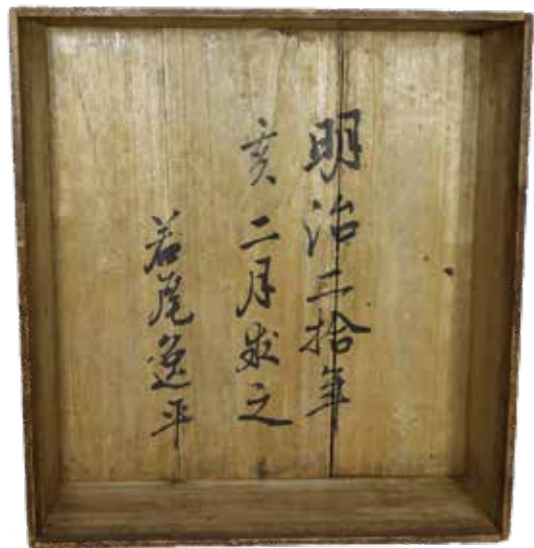 明治二拾年
亥二月求之
若尾逸平